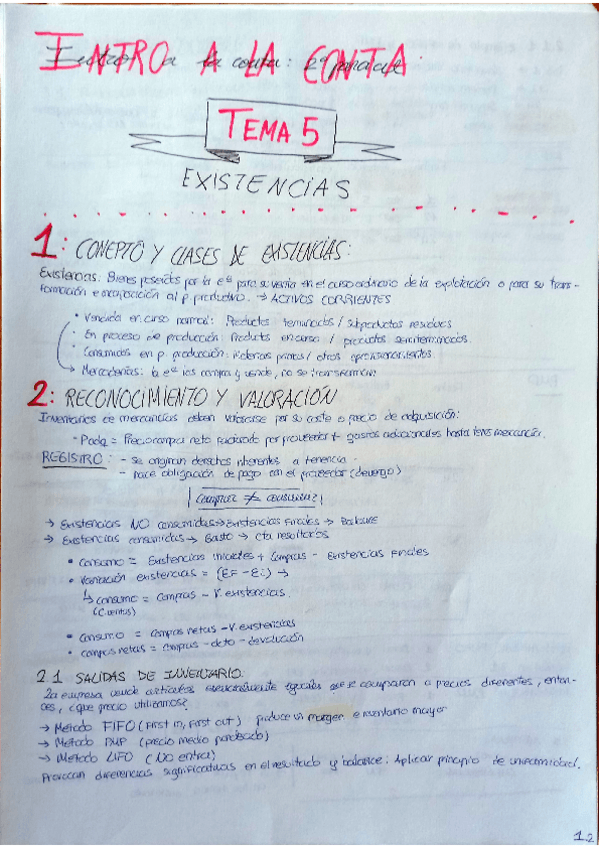 INTRO A LA CONTA
TEMA 5
EXISTENCIAS
1: CONCEPTO Y CLASES DE EXISTENCIAS:
Existencias: Bienes poseídos por la eª para su venta en el curso ordinario de la explotación o para su trans-
formación e incorporación al p productivo. → ACTIVOS CORRIENTES
• Vendida en curso normal: Productos terminados / subproductos residuos
• En proceso de producción: Products en curso / productos semiterminados.
• Consumidos en p. producción: materias primas / otros aprovisionamientos.
→ Mercaderías: la eª los compra y vende, no se transforman
2: RECONOCIMIENTO Y VALORACIÓN
Inventarios de mercancías deben valorarse por su coste o precio de adquisición:
- Padq = Precio compra neto facturado por proveedor + gastos adicionales hasta tener mercancía.
REGISTRO: - se originan derechos inherentes a tenencia -
- nace obligación de pago con el proveedor (devengo)
¡Comprar ≠ consumir!
→ Existencias NO consumidas → Existencias Finales → Balance
→ Existencias consumidas → Gasto → cta resultados
• Consumo = Existencias iniciales + Compras - Existencias Finales
• Variación existencias = (EF - Ei) →
↳ consumo = compras - V. existencias.
(Cuentas)
• Consumo = compras netas - V. existencias
• compras netas = compras - dcto - devolución
2.1 SALIDAS DE INVENTARIO:
La empresa vende artículos iguales que se compraron a precios diferentes, enton-
ces, ¿que precio utilizamos?
→ Método FIFO (First in, First out) produce un margen e inventario mayor
→ Método PMP (precio medio ponderado)
→ Método LIFO (No entra)
Provocan diferencias significativas en el resultado y balance: Aplicar principio de uniformidad.
1.2